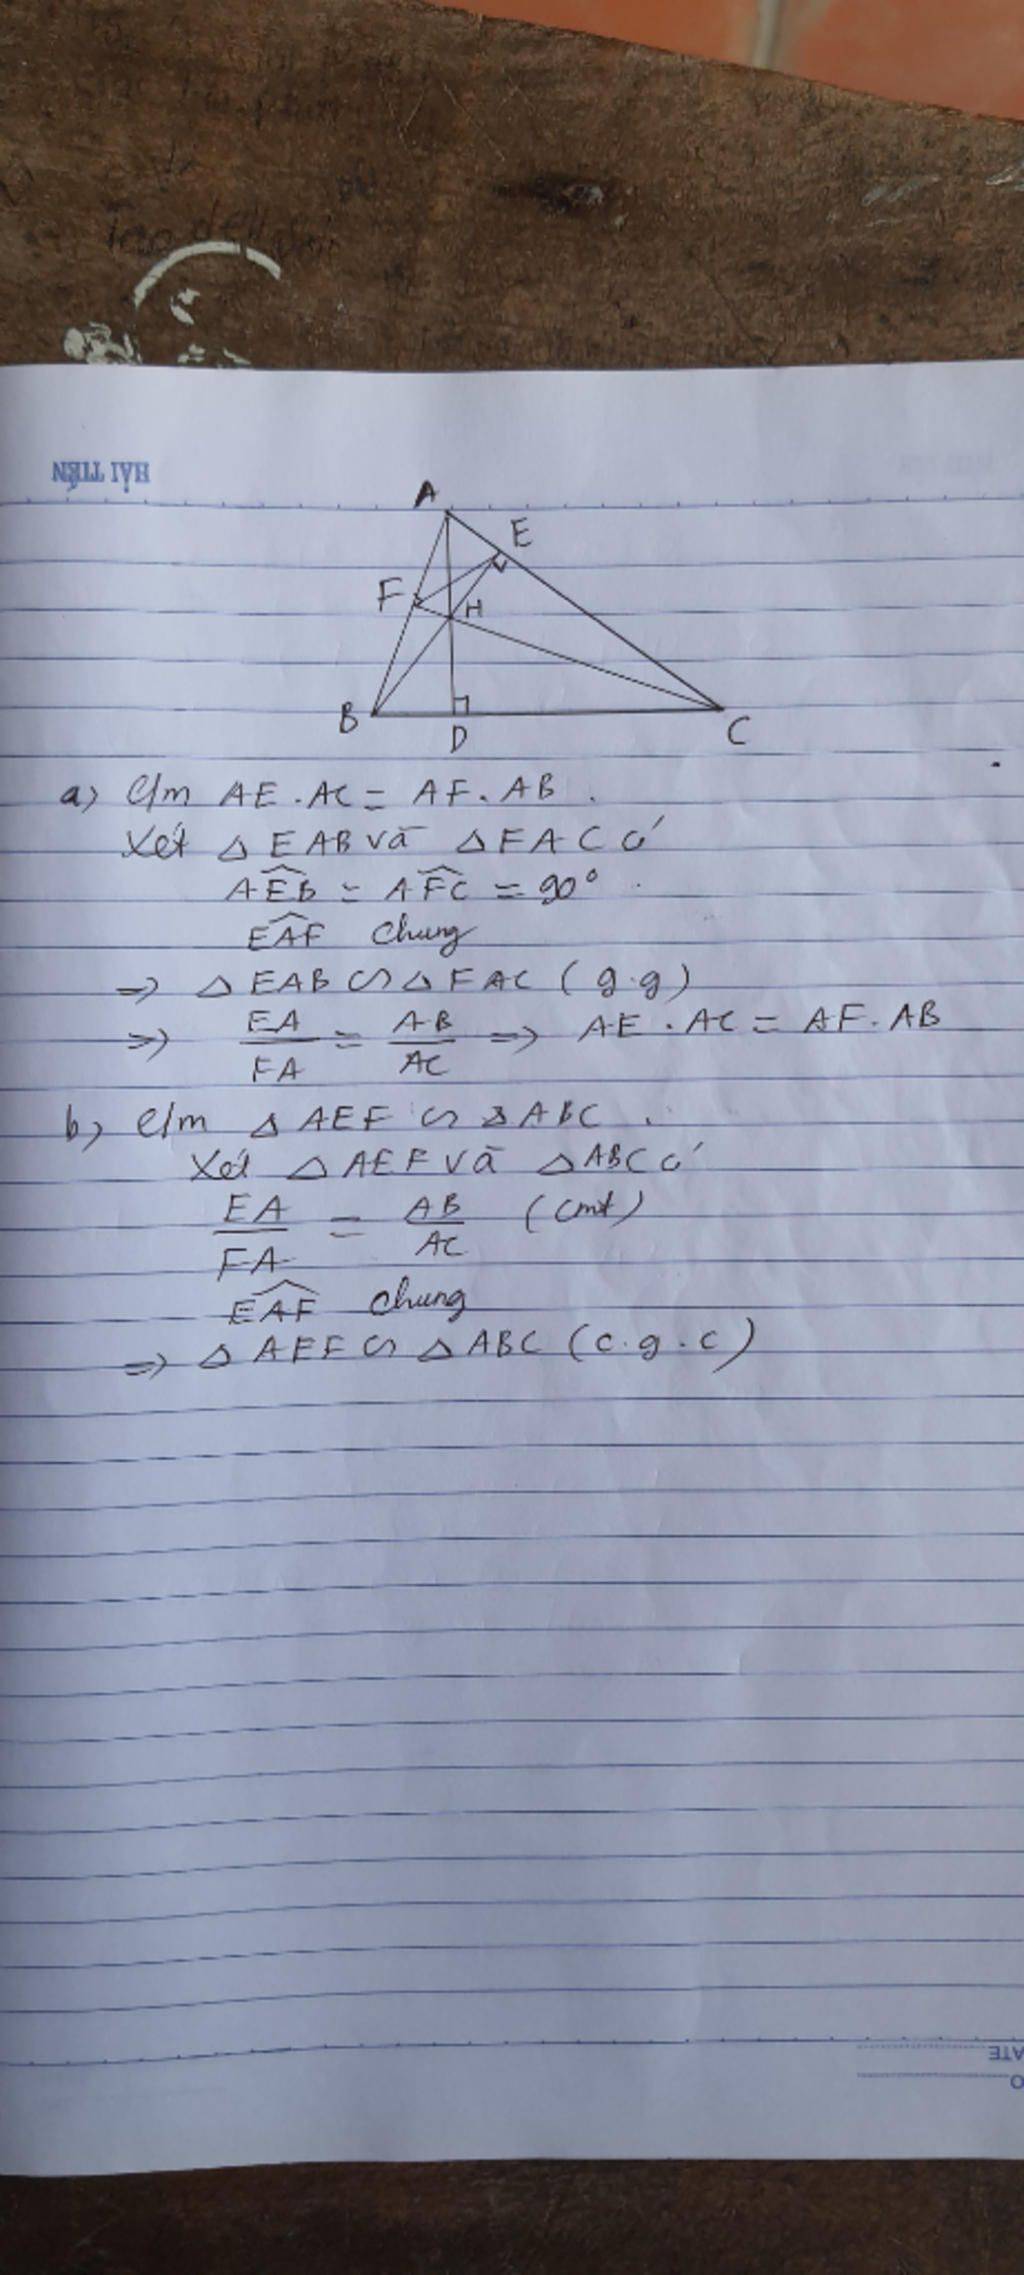 HẢI TIẾN
A
E
F
H
B
D
C
a) C/m AE . AC = AF . AB .
Xét △ EAB và △ FAC có
AEB = AFC = 90°
EAF chung
=> △ EAB ∽ △ FAC ( g.g)
=> EA/FA = AB/AC => AE . AC = AF . AB
b) C/m △ AEF ∽ △ ABC .
Xét △ AEF và △ ABC có
EA/FA = AB/AC (cmt)
EAF chung
=> △ AEF ∽ △ ABC (c.g.c)